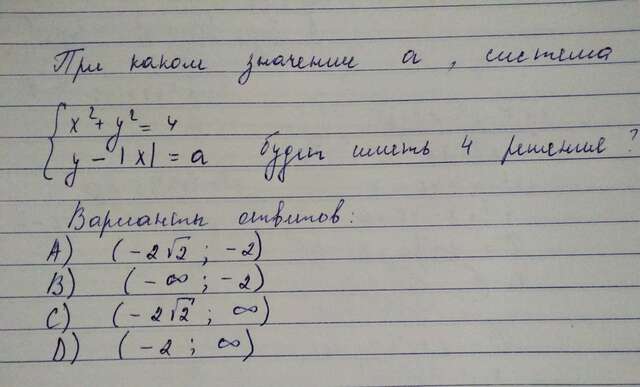 При каком значении a, система
{ x² + y² = 4
y - |x| = a будет иметь 4 решение?
Варианты ответов:
A) (-2√2 ; -2)
B) (-∞ ; -2)
C) (-2√2 ; ∞)
D) (-2 ; ∞)